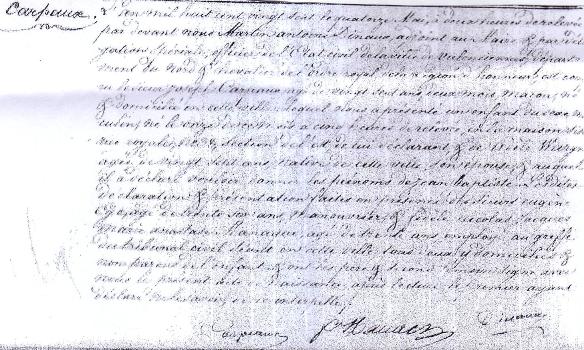 Carpeaux
L'an mil huit cent vingt sept le quatorze Mai, à deux heures de relevée
par devant nous Martin antoine Dinaux, adjoint au Maire & par
gation Spéciale, officier de l'Etat civil de la ville de valenciennes, Départ
ement du Nord & chevalier de l'ordre royal de la légion d'honneur, est com
paru le Sieur Joseph Carpeaux agé de vingt sept ans deux mois macon, né
& domicilié en cette ville, lequel nous a présenté un enfant du sexe mas
culin, né le onze de ce mois à cinq heures de relevée, en la maison
rue royale, section de lui déclarant & de Adèle Wargn
agée de vingt sept ans, native de cette ville, son épouse, & auquel
il a déclaré vouloir donner les prénoms de Jean Baptiste
déclaration & présentation faites en présence des Sieurs Eugène
agé de trente ans, manouvrier & nicolas Jacques
marie anastase agé de trente ans employé au greffe
du tribunal civil séant en cette ville, tous deux y domiciliés &
non parens de l'enfant & ont des père & second témoin signé avec
nous le présent acte de naissance après lecture, le premier ayant
déclaré ne le savoir de ce interpellé.
Carpeaux
Dinaux